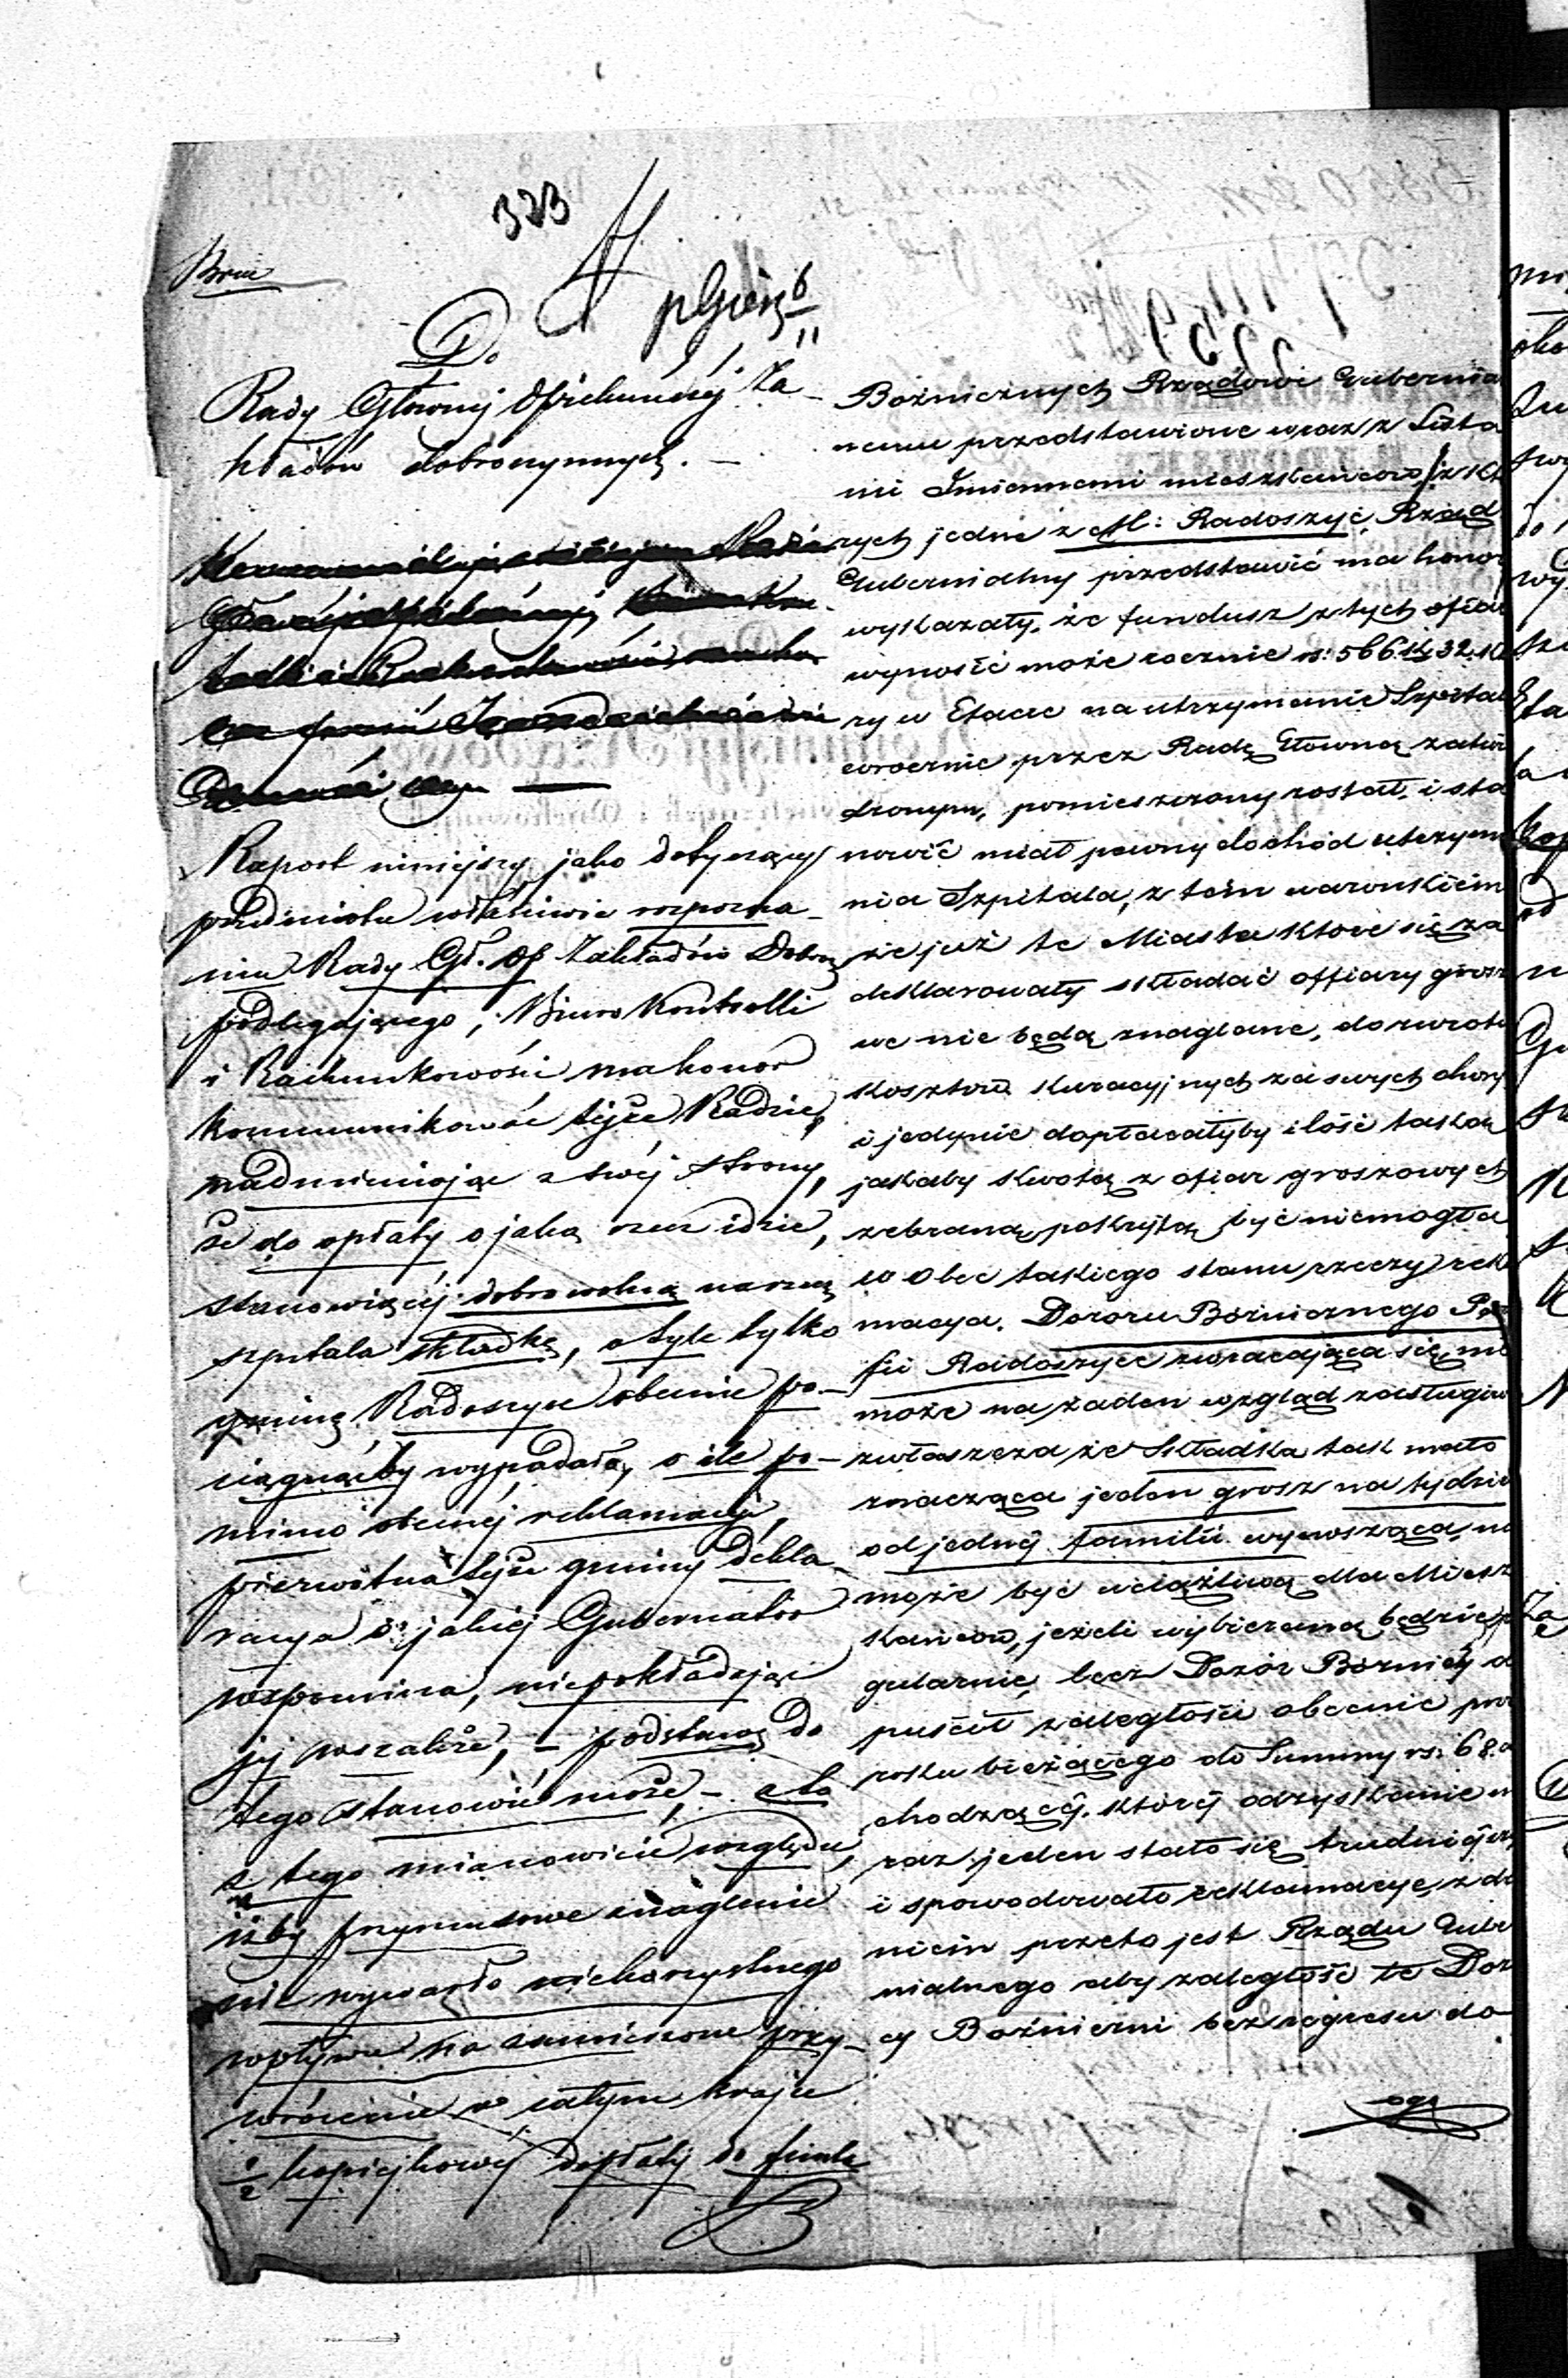 323
plgień 6/11
Do
Rady Głównej Opiekuńczej Za-
kładów dobroczynnych. —
Raport niniejszy jako dotyczący
przedmiotu właściwie rozpozna-
niu Rady Gł. Op Zakładów Dobrocz
podlegającego, Biuro Kontrolli
i Rachunkowości ma honor
kommunikować tejże Radzie,
nadmieniając z swej strony,
że do opłaty o jaką rzecz idzie,
stanowiącej dobrowolną na rzecz
szpitala składkę, o tyle tylko
gminę Radoszyce obecnie po-
ciągnąćby wypadało, o ile po-
mimo obecnéj reklamacji,
pierwotna tejże gminy dekla-
racya o jakiej Gubernator
wspomina, niepokładając
jej wszakże, — podstawę do
tego stanowić może, — a to
z tego mianowicie względu,
iżby przymusowe naglenie
nie wywarło niekorzystnego
wpływu na zamierzone przy-
wrócenie w całym kraju
1/2 kopiejkowej dopłaty do funta
Bóżnicznych Rządowi Gubernial
nemu przedstawione wraz z Lista
mi Imiennemi mieszkańców, z któ
rych jedne z M: Radoszyc Rząd
Gubernialny przedstawić ma honor
wykazały, że fundusz z tych ofiar
wynosić może rocznie rs: 566 k 32 któ
ry w Etacie na utrzymanie Szpitala
corocznie przez Radę Główną zatwier
dzonym, pomieszczony został, i sta
nowić miał pewny dochód utrzyma
nia Szpitala, z tém warunkiem
że już te Miasta które się za
deklarowały składać offiary groszo
we nie będą znaglane, do zwrotu
kosztów kuracyjnych za swych chorych
i jedynie dopłacałyby ilość taską
jakaby kwotą z ofiar groszowych
zebraną, pokrytą być niemogła
w obec takiego stanu rzeczy rekla
macya. Dozoru Bóżnicznego Para
fii Radoszyce zwracająca się, nie
może na żaden wzgląd zasługiwać
zwłaszcza że Składka tak mało
znacząca jeden grosz na tydzień
od jednéj familii wynosząca, nie
może być uciążliwą dla Miesz
kańców, jeżeli wybieraną będzie re
gularnie, lecz Dozór Bóżniczy do
puścił zaległości obecnie przez
roku bieżącego do Summy rs: 68. do
chodzącéj, któréj odzyskanie na
raz jeden stało się trudniejsze
i spowodowało reklamacyę, zda
niem przeto jest Rządu Guber
nialnego aby zaległość tę Dozór
cy Bóżniczni bez regresu do